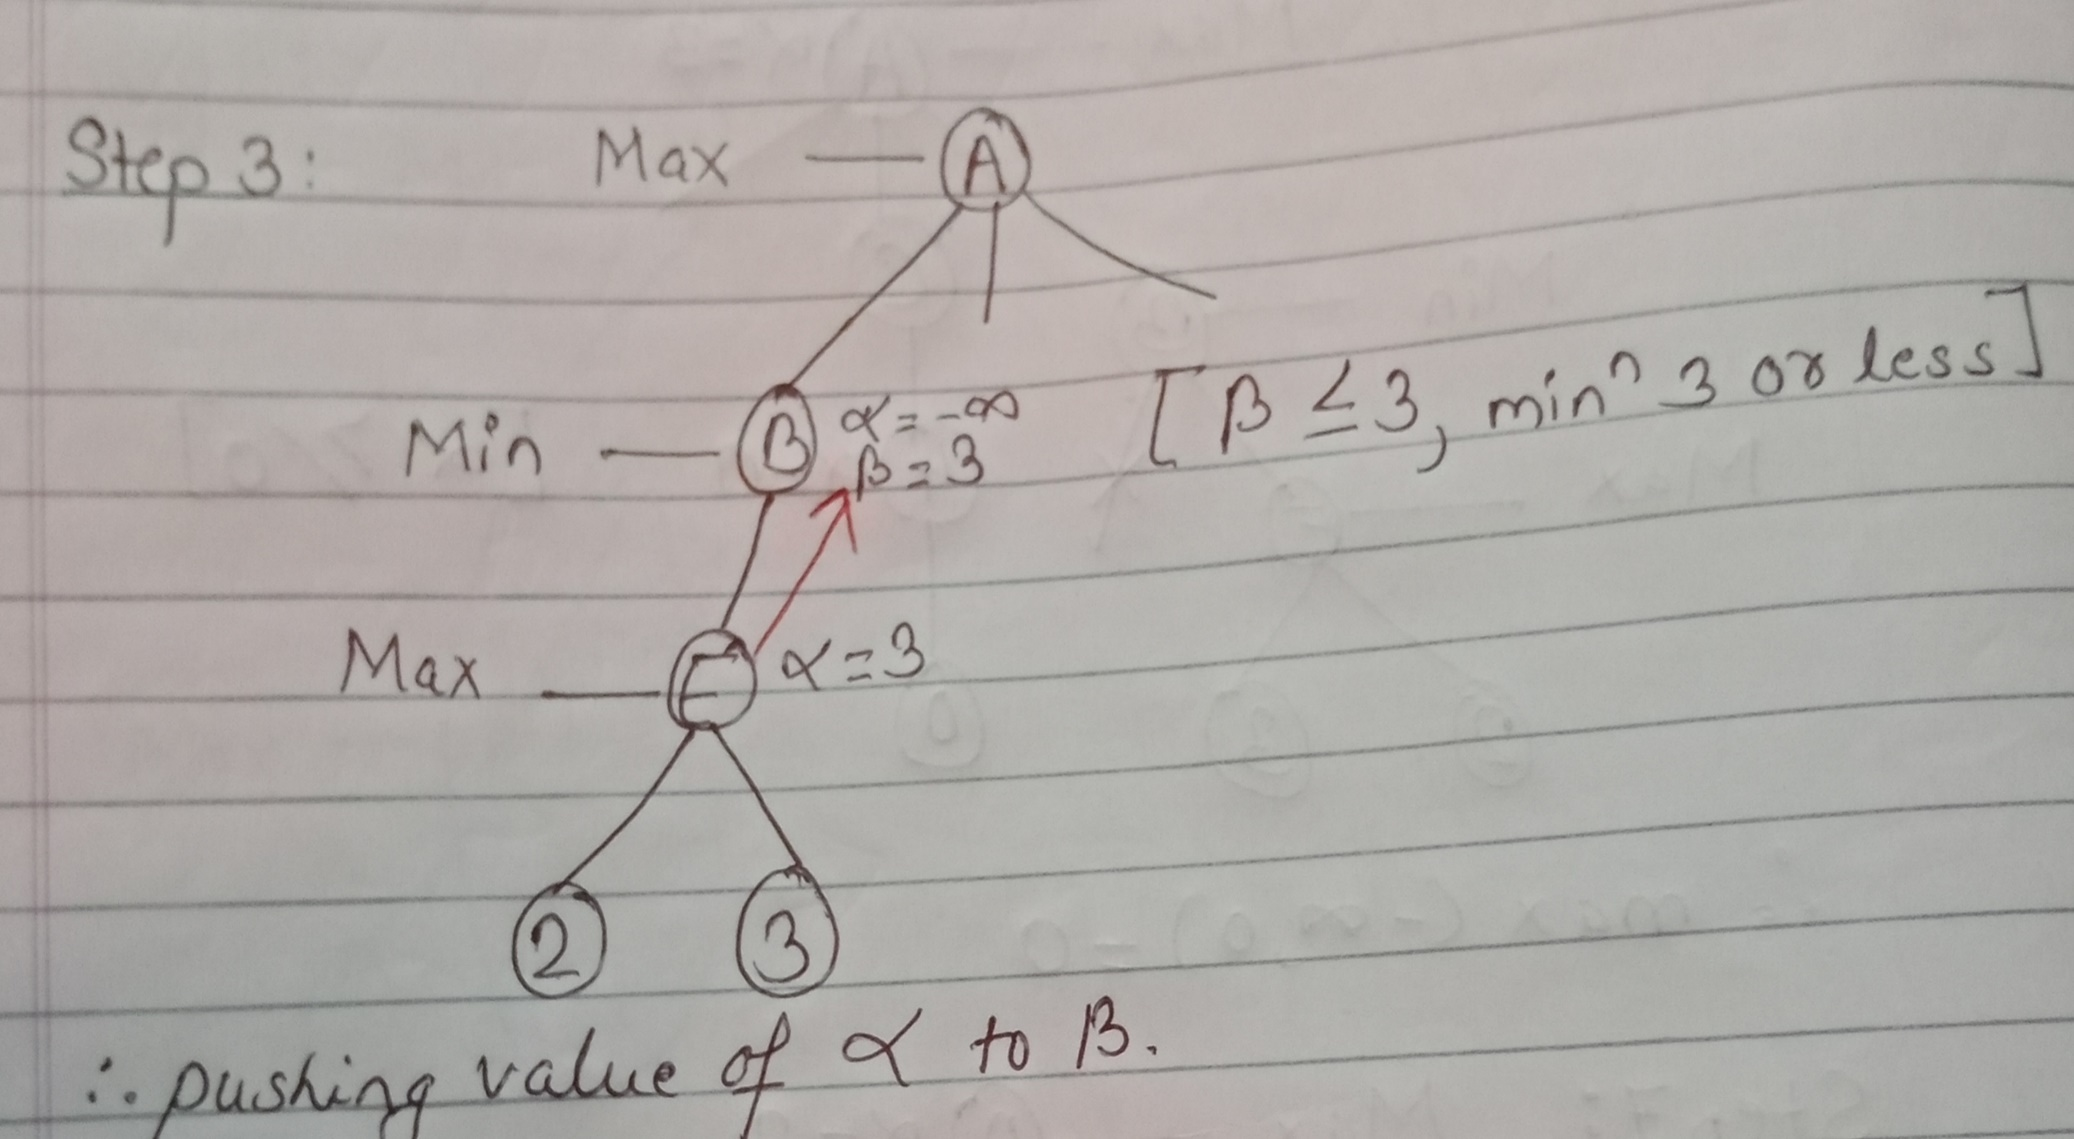 Step 3:
Max — A
Min — B α = -∞
β = 3
[β ≤ 3, minⁿ 3 or less]
Max — E α = 3
2 3
∴ pushing value of α to β.